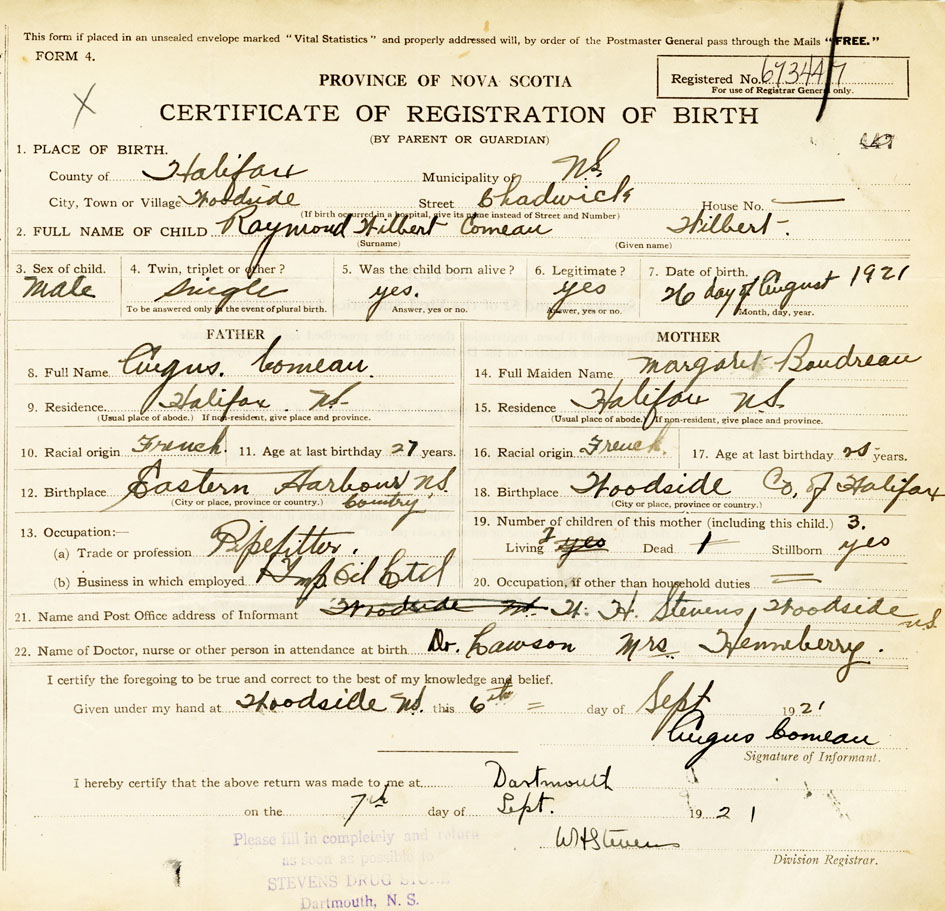 This form if placed in an unsealed envelope marked "Vital Statistics" and properly addressed will, by order of the Postmaster General pass through the Mails "FREE."
FORM 4.
PROVINCE OF NOVA SCOTIA
Registered No. 673447
For use of Registrar General only.
X
CERTIFICATE OF REGISTRATION OF BIRTH
(BY PARENT OR GUARDIAN)
1. PLACE OF BIRTH.
County of Halifax Municipality of N.S.
City, Town or Village Woodside Street Chadwick House No. —
(If birth occurred in a hospital, give its name instead of Street and Number)
2. FULL NAME OF CHILD Raymond Wilbert Comeau Wilbert.
(Surname) (Given name)
3. Sex of child. 4. Twin, triplet or other? 5. Was the child born alive? 6. Legitimate? 7. Date of birth.
Male Single yes. yes 26 day of August 1921
To be answered only in the event of plural birth. Answer, yes or no. Answer, yes or no. Month, day, year.
FATHER MOTHER
8. Full Name Angus. Comeau. 14. Full Maiden Name Margaret Boudreau
9. Residence Halifax N.S. 15. Residence Halifax N.S.
(Usual place of abode.) If non-resident, give place and province. (Usual place of abode.) If non-resident, give place and province.
10. Racial origin French. 11. Age at last birthday 27 years. 16. Racial origin French. 17. Age at last birthday 25 years.
12. Birthplace Eastern Harbour N.S. 18. Birthplace Woodside Co. of Halifax
(City or place, province or country.) Country (City or place, province or country.)
13. Occupation:— 19. Number of children of this mother (including this child.) 3.
(a) Trade or profession Pipefitter. Living 2 yes Dead 1 Stillborn yes
(b) Business in which employed Imp Oil Ltd 20. Occupation, if other than household duties =
21. Name and Post Office address of Informant Woodside N.S. W. H. Stevens, Woodside N.S.
22. Name of Doctor, nurse or other person in attendance at birth Dr. Lawson Mrs. Henneberry.
I certify the foregoing to be true and correct to the best of my knowledge and belief.
Given under my hand at Woodside N.S. this 6th = day of Sept 1921
Angus Comeau
Signature of Informant.
I hereby certify that the above return was made to me at Dartmouth
on the 7th day of Sept. 1921
WHStevens
Division Registrar.
Please fill in completely and return
as soon as possible to
STEVENS DRUG STORE
Dartmouth, N. S.